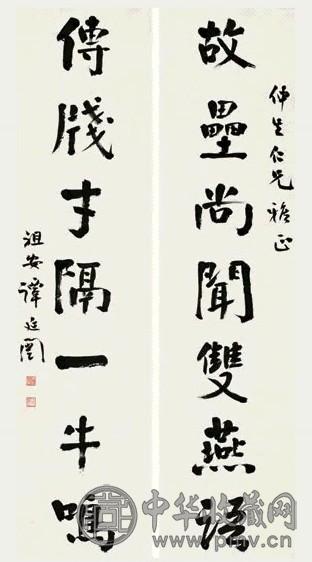 仲生仁兄雅正
故壘尚聞雙燕語
傳牋才隔一牛鳴
祖安譚延闓
中华收藏网
www.pmv.cn